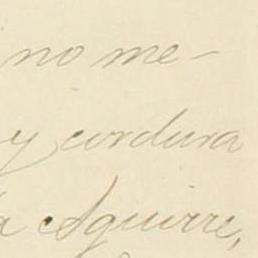 no me-
y cordura
a Aguirre,